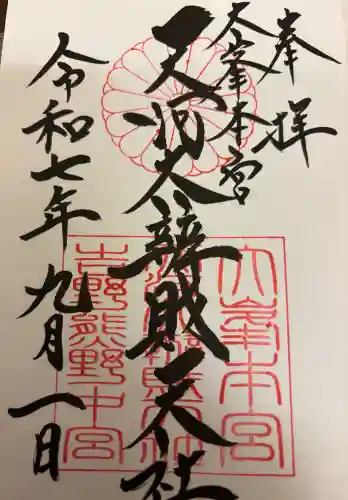 奉拝
大峯本宮
天河大辨財天社
令和七年九月一日
大峯本宮
天河大辨財天社
吉野熊野中宮